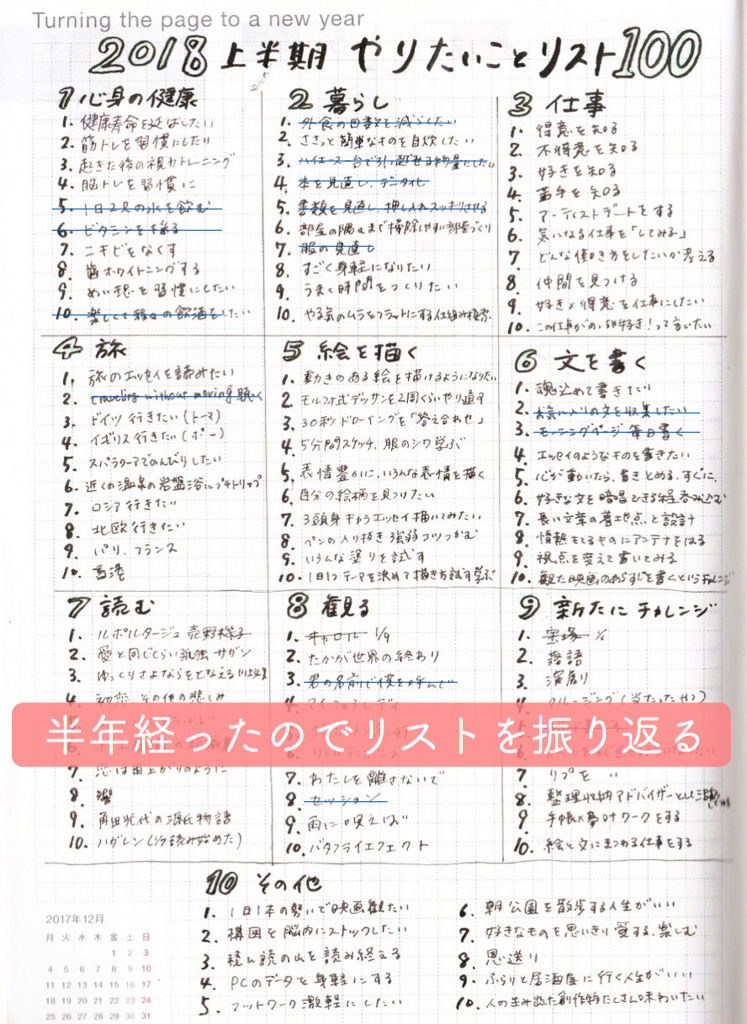 Turning the page to a new year
2018 上半期 やりたいことリスト100
1 心身の健康
1. 健康寿命を延ばしたい
2. 筋トレを習慣にしたい
3. 起きた後の視力トレーニング
4. 脳トレを習慣に
5. 1日2Lの水を飲む
6. ビタミンを採る
7. ニキビをなくす
8. 歯ホワイトニングする
9. めい想を習慣にしたい
10. 楽しくて程々の飲酒をしたい
2 暮らし
1. 外食の回数を減らしたい
2. ささっと簡単なものを自炊したい
3. ハイエース一台で引っ越せる物量にしたい
4. 本を見直し、データ化
5. 書類を見直し、押し入れスッキリさせる
6. 部屋の隅々まで掃除しやすい部屋づくり
7. 服の見直し
8. すごく身軽になりたい
9. うまく時間をつくりたい
10. やる気のムラをフラットにする仕組み模索
3 仕事
1. 得意を知る
2. 不得意を知る
3. 好きを知る
4. 苦手を知る
5. アーティストデートをする
6. 気になる仕事を「してみる」
7. どんな働き方をしたいか考える
8. 仲間を見つける
9. 好き×得意を仕事にしたい
10. この仕事が好き!って言いたい
4 旅
1. 旅のエッセイを読みたい
2. traveling without moving 聴く
3. ドイツ行きたい(トーマ)
4. イギリス行きたい(ポー)
5. スパラクーアでのんびりしたい
6. 近くの温泉の岩盤浴にプチトリップ
7. ロシア行きたい
8. 北欧行きたい
9. パリ、フランス
10. 香港
5 絵を描く
1. 動きのある絵を描けるようになりたい
2. モルフォ式デッサンを2周くらいやり直す
3. 30秒ドローイングを「答え合わせ」
4. 5分間スケッチ、服のシワ学ぶ
5. 表情豊かに、いろんな表情を描く
6. 自分の絵柄を見つけたい
7. 3頭身キャラエッセイ描いてみたい
8. ペンの入り抜き強弱コツつかむ
9. いろんな塗りを試す
10. 1日1テーマを決めて描き方試す学ぶ
6 文を書く
1. 魂込めて書きたい
2. お気に入りの文を収集したい
3. モーニングページ毎日書く
4. エッセイのようなものを書きたい
5. 心が動いたら、書きとめる、すぐに、
6. 好きな文を暗唱できる程呑みこむ
7. 長い文章の着地点、と設計
8. 情熱もてるものにアンテナをはる
9. 視点を変えて書いてみる
10. 観た映画のあらすじを書くというチャレンジ
7 読む
1. ルポルタージュ 売野機子
2. 愛と同じくらい孤独 サガン
3. ゆっくりさよならをとなえる 川上弘美
4. 初恋、その他の悲しみ
半年経ったのでリストを振り返る
7. 恋は雨上がりのように
8.
9. 角田光代の源氏物語
10. ハガレン(读み始めた)
8 観る
1. キャロル 1/9
2. たかが世界の終わり
3. 君の名前で僕を呼んで
7. わたしを離さないで
8. セッション
9. 雨に唄えば
10. バタフライエフェクト
9 新たにチャレンジ
1. 宝塚
2. 落語
3. 演劇
4. クルージング(当たったやつ)
7. リプを 〃
8. 整理収納アドバイザーとして活動
9. 手帳×夢叶ワークをする
10. 絵と文にまつわる仕事をする
10 その他
1. 1日1本の勢いで映画観たい
2. 構図を脳内にストックしたい
3. 積ん読の山を読み終える
4. PCのデータを身軽にする
5. フットワーク激軽にしたい
6. 朝公園を散歩する人生がいい
7. 好きなものを思いきり愛する、楽しむ
8. 恩送り
9. ふらりと居酒屋に行く人生がいい
10. 人の生み出た創作物たくさん味わいたい
2017年12月
月 火 水 木 金 土 日
1 2 3
4 5 6 7 8 9 10
11 12 13 14 15 16 17
18 19 20 21 22 23 24
25 26 27 28 29 30 31